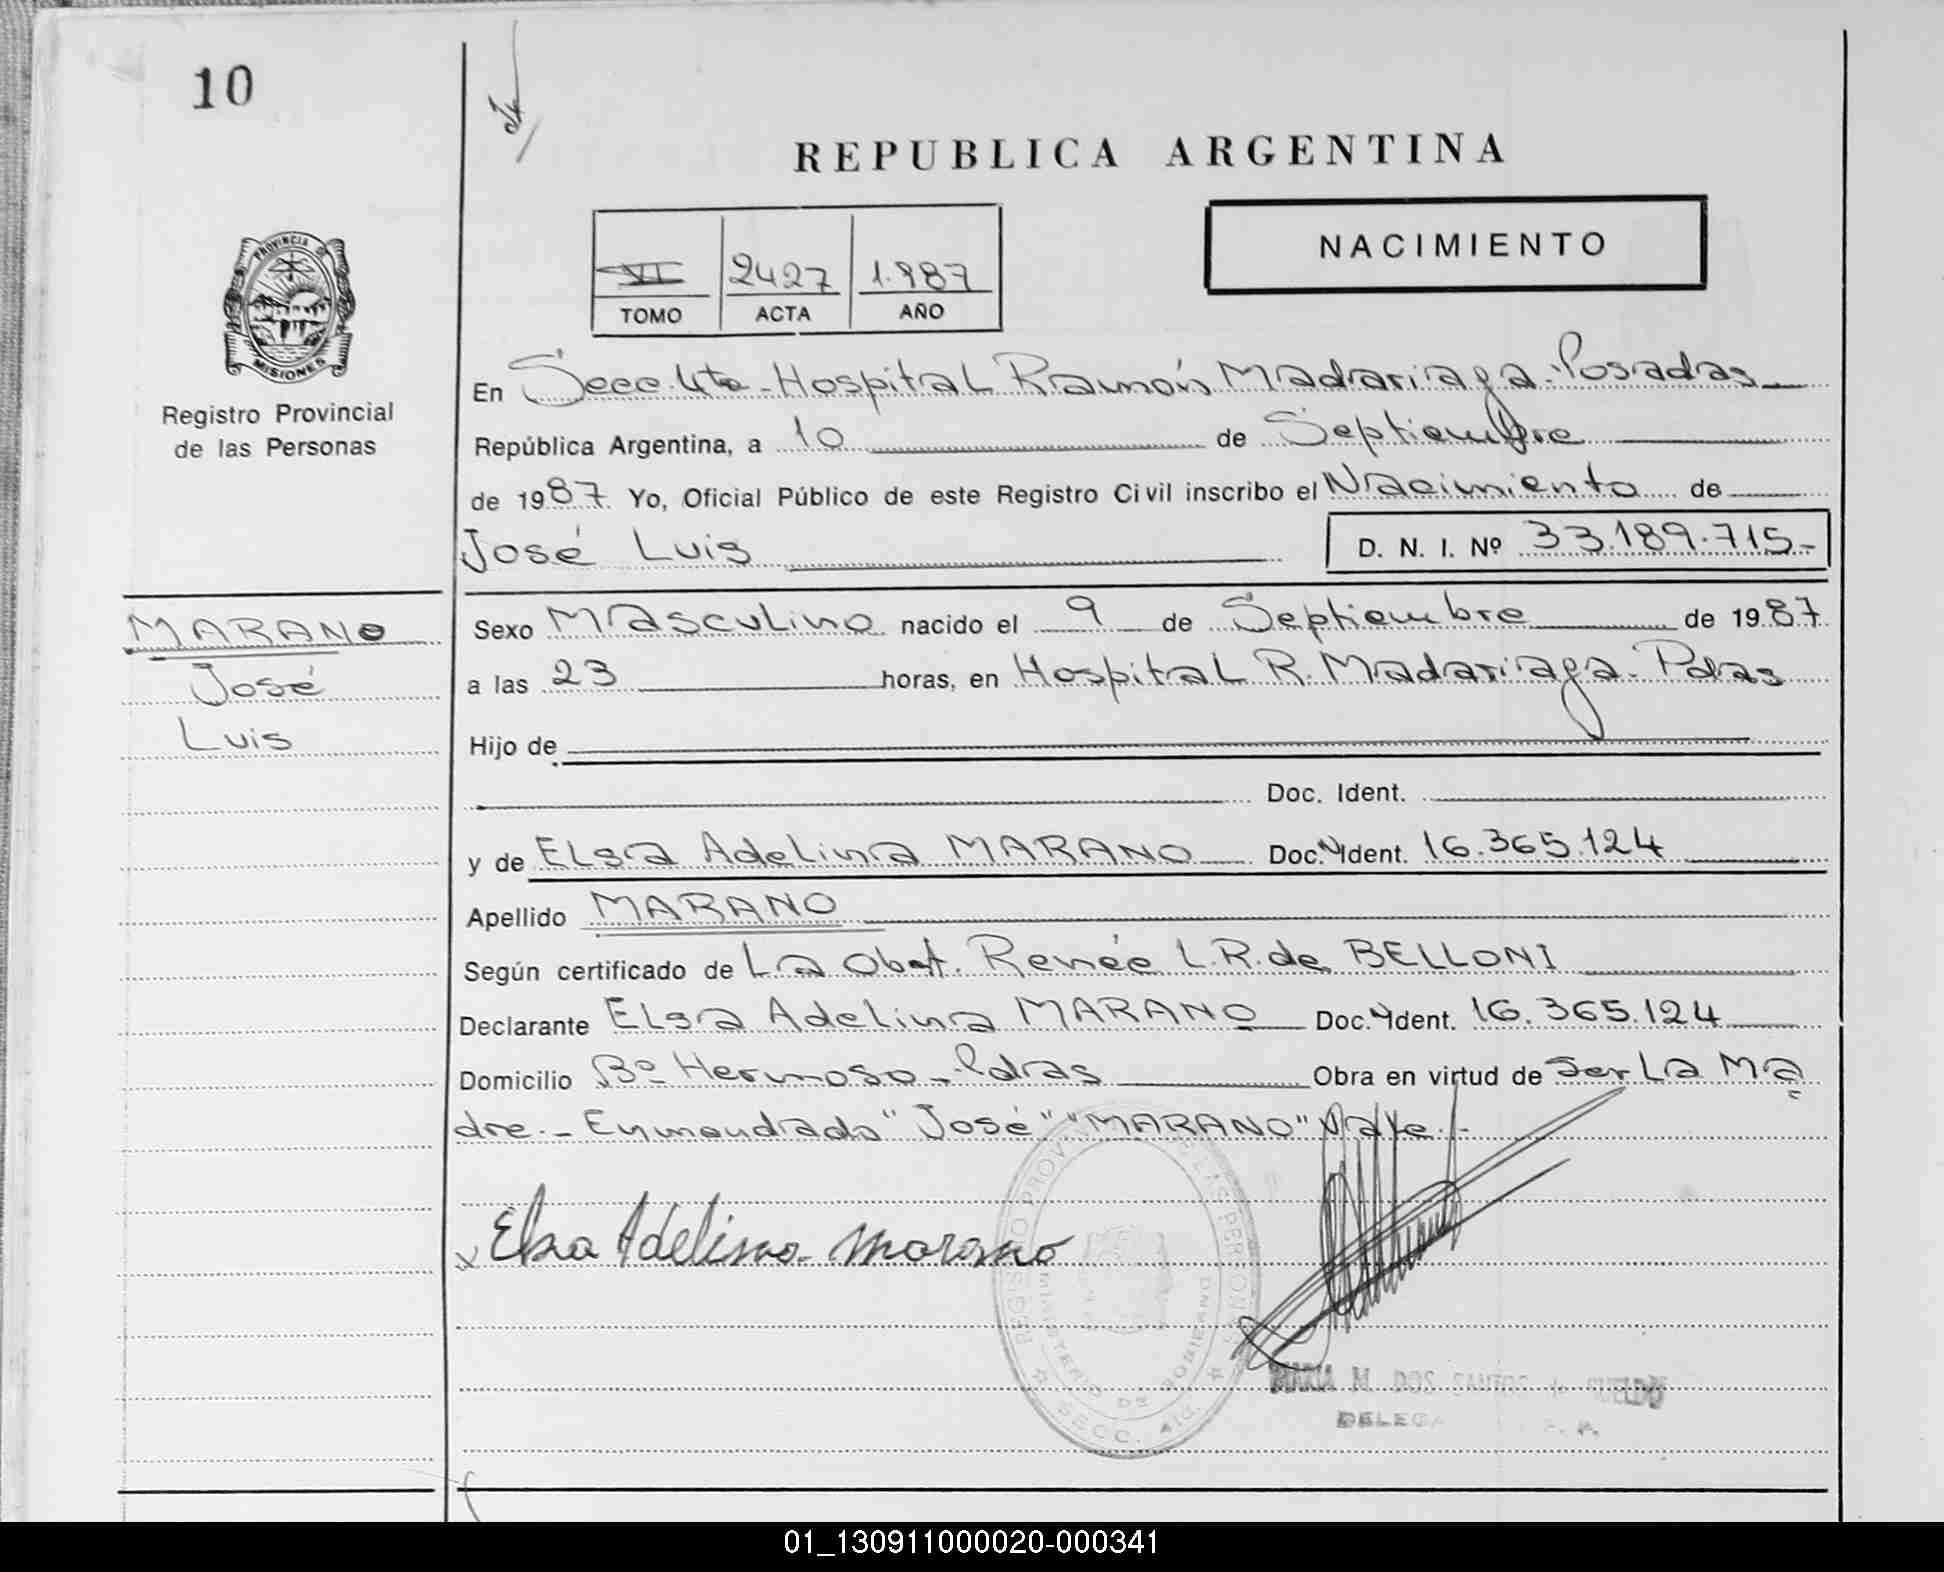 10
REPUBLICA ARGENTINA
VI 2427 1.987
TOMO ACTA AÑO
NACIMIENTO
PROVINCIA DE
MISIONES
Registro Provincial
de las Personas
En Secc. 4ta - Hospital Ramón Madariaga - Posadas
República Argentina, a 10 de Septiembre
de 1987. Yo, Oficial Público de este Registro Civil inscribo el Nacimiento de
José Luis D. N. I. Nº 33.189.715-
MARANO
José
Luis
Sexo Masculino nacido el 9 de Septiembre de 1987
a las 23 horas, en Hospital R. Madariaga - Pdas
Hijo de
Doc. Ident.
y de Elsa Adelina MARANO Doc. Ident. 16.365.124
Apellido MARANO
Según certificado de La Obst. Renée L.R. de BELLONI
Declarante Elsa Adelina MARANO Doc. Ident. 16.365.124
Domicilio Bº Hermoso - Pdas Obra en virtud de ser La Ma
dre.- Enmendado "José" "MARANO" Vale.-
Elsa Adelina Marano
REGISTRO PROVINCIAL DE LAS PERSONAS
MINISTERIO DE GOBIERNO
SECC. 4ta.
MARIA M. DOS SANTOS de
01_130911000020-000341